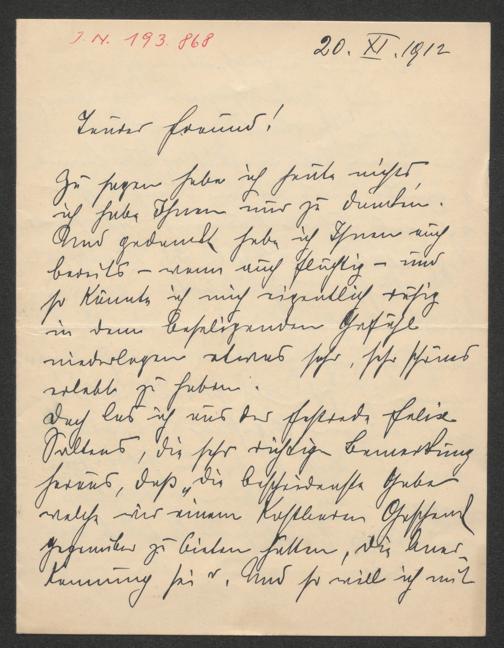 J. N. 193.868
20. XI. 1912
Teurer Freund!
Zu sagen habe ich heute nichts,
ich habe Ihnen nur zu danken.
Und gedankt habe ich Ihnen auch
bereits – wenn auch flüchtig – und
so könnte ich mich eigentlich ruhig
in dem beseligenden Gefühl
niederlegen etwas sehr, sehr schönes
erlebt zu haben.
Doch las ich aus der Festrede Felix
Saltens, die sehr richtige Bemerkung
heraus, daß „die bescheidenste Gabe
welche wir einem kostbaren Geschenk
gegenüber zu bieten hätten, die Aner-
kennung sei". Und so will ich mit